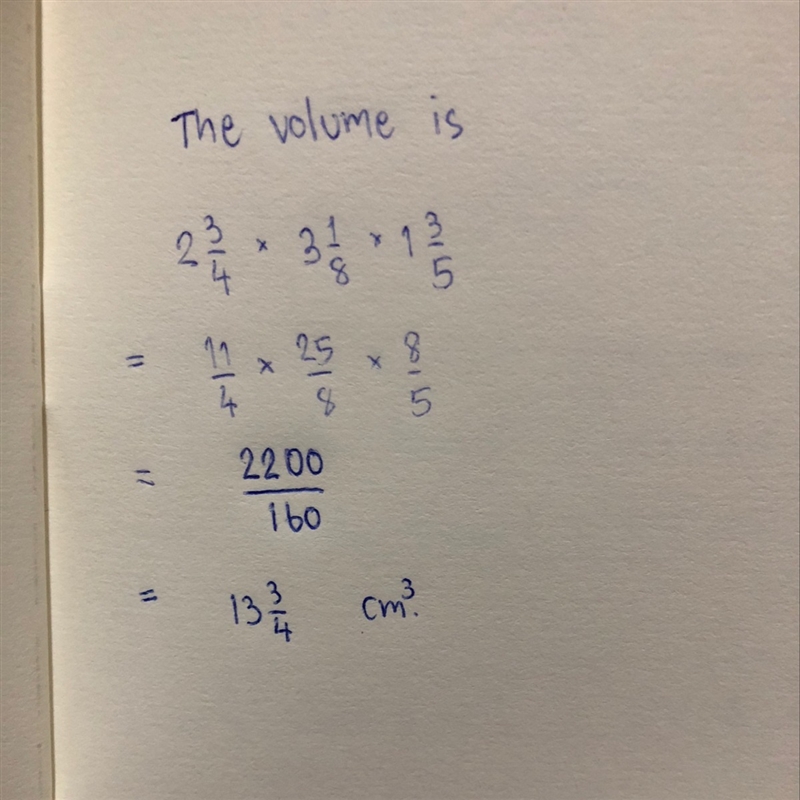 The volume is
2 3/4 × 3 1/8 × 1 3/5
= 11/4 × 25/8 × 8/5
= 2200/160
= 13 3/4 cm³.